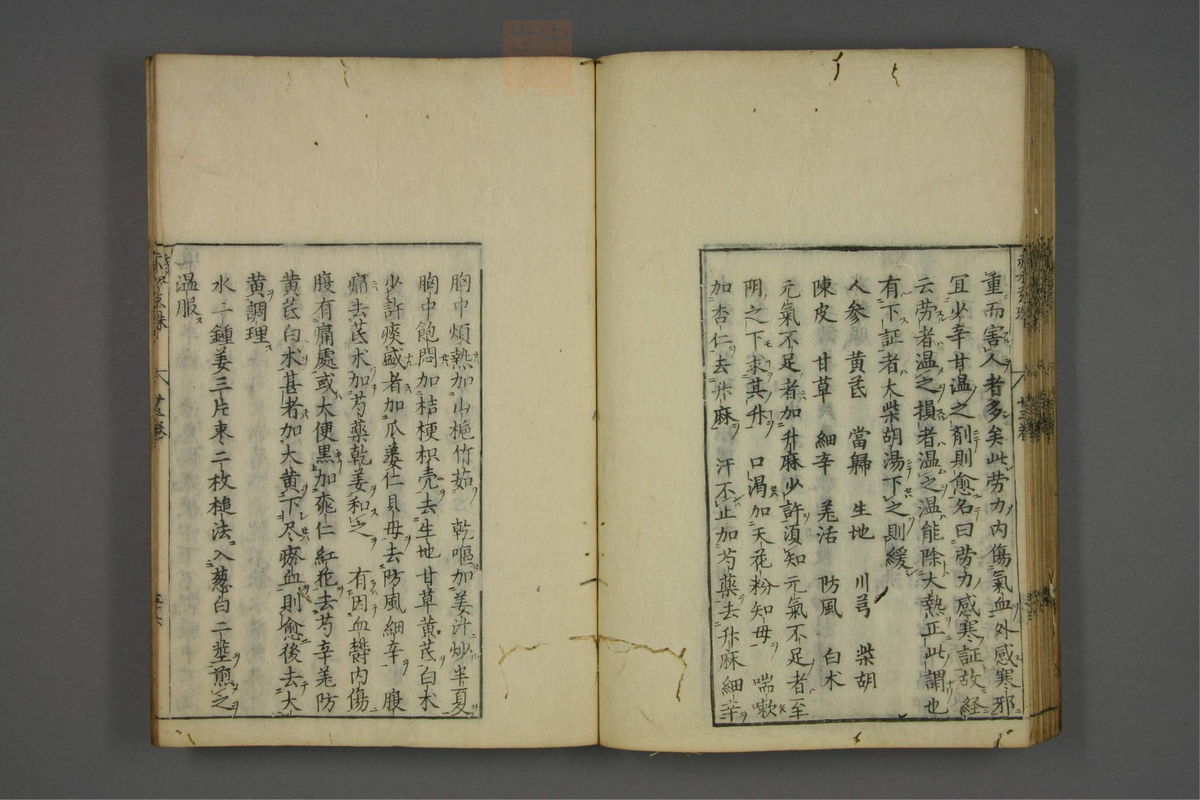 重而害人者多矣此劳力内傷氣血外感寒邪
宜必辛甘温之劑則愈名曰劳力感寒証故経
云劳者温之損者温之温能除大熱正此謂也
有下証者大柴胡湯下之則緩
人参 黄芪 當歸 生地 川芎 柴胡
陳皮 甘草 細辛 羌活 防風 白朮
元氣不足者加升麻少許須知元氣不足者至
阴之下求其升 口渴加天花粉知母 喘嗽
加杏仁去升麻 汗不止加芍藥去升麻細辛
胸中煩熱加山梔竹茹 乾嘔加姜汁炒半夏
胸中飽悶加桔梗枳壳去生地甘草黄芪白朮
少許痰盛者加瓜蒌仁貝母去防風細辛 腹
痛去芪朮加芍藥乾姜和之 有因血欝内傷
腹有痛處或大便黒加桃仁紅花去芍辛羌防
黄芪白朮甚者加大黄下尽瘀血則愈後去大
黄調理
水二鍾姜三片枣二枚槌法入葱白二莖煎之
温服